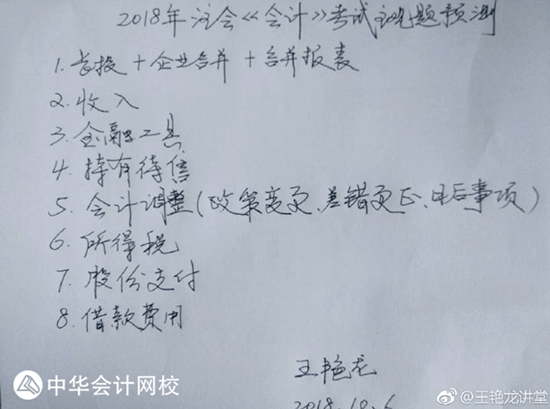 2018年注会《会计》考试主观题预测
1. 长投+企业合并+合并报表
2. 收入
3. 金融工具
4. 持有待售
5. 会计调整(政策变更、差错更正、日后事项)
6. 所得税
7. 股份支付
8. 借款费用
王艳龙
2018.10.6
中华会计网校
@王艳龙讲堂